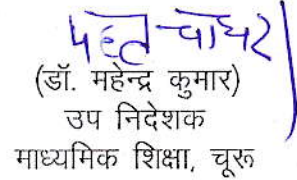 (डॉ. महेन्द्र कुमार)
उप निदेशक
माध्यमिक शिक्षा, चूरू